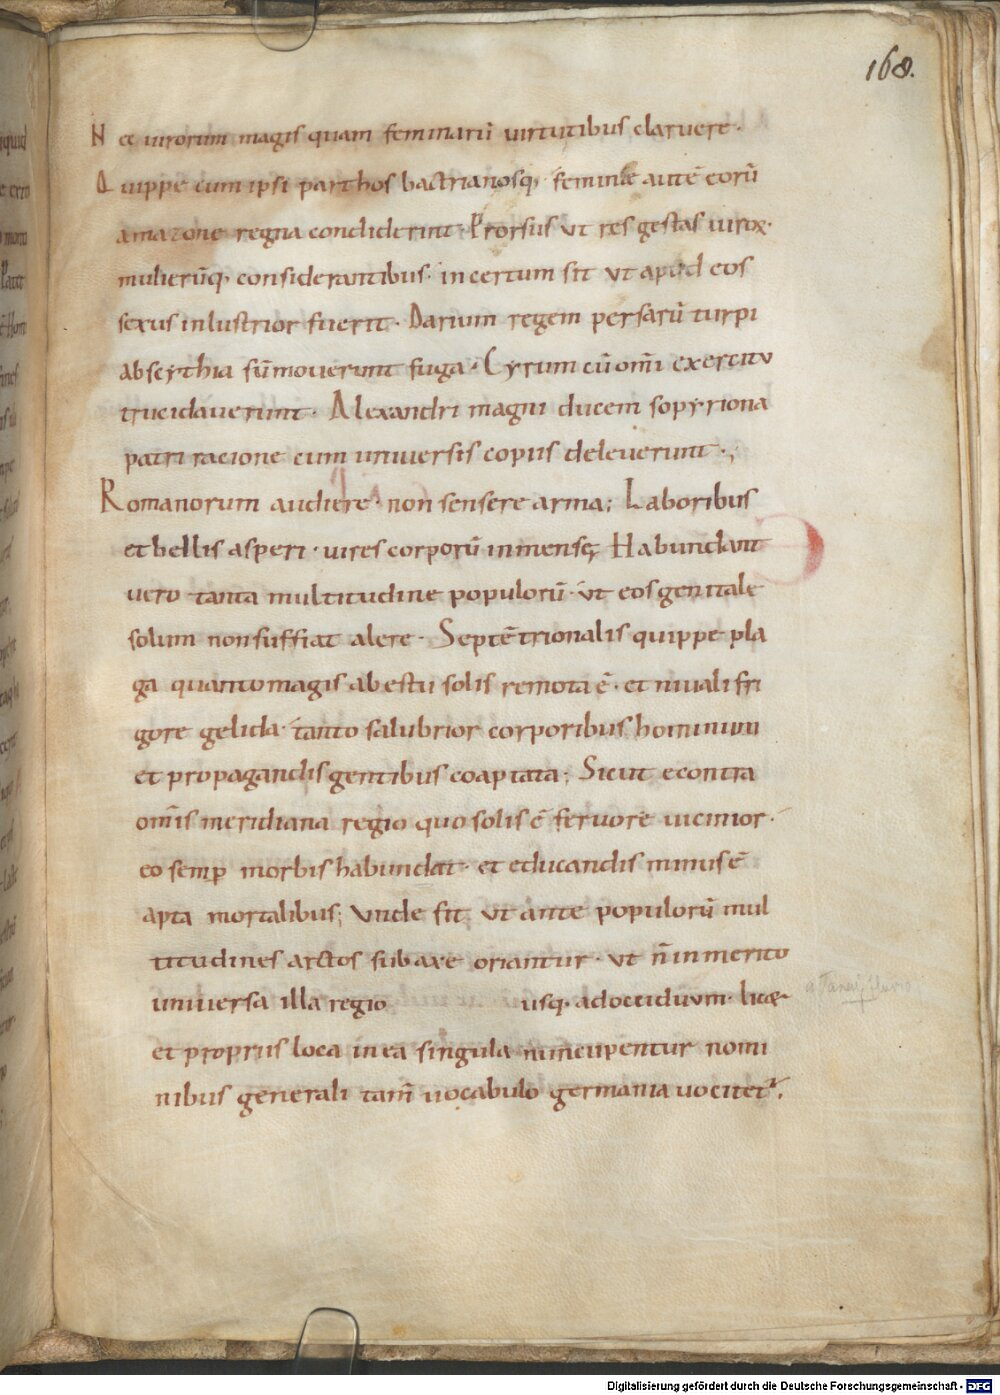 168.
N ec uirorum magis quam feminarū uirtutibus claruere·
Q uippe cum ipsi parthos bactrianosq; feminae autē eorū
amazone regna condiderint· Prorsus ut res gestas uiroꝝ·
mulierūq; considerantibus· incertum sit ut apud eos
sexus inlustrior fuerit· Darium regem persarū turpi
abscythia sūmouerunt fuga· Cyrum cū om̄i exercitu
trucidauerunt· Alexandri magni ducem sopyriona
patri racione cum uniuersis copiis deleuerunt·;
Romanorum audiere· non sensere arma; Laboribus
et bellis asperi· uires corporū inmensę; Habundant
uero tanta multitudine populorū· ut eos genitale
solum non suffiat alere· Septētrionalis quippe pla
ga quanto magis ab estu solis remota ē· et niuali fri
gore gelida· tanto salubrior corporibus hominum
et propagandis gentibus coaptata; Sicut econtra
om̄is meridiana regio quo solis ē feruore uicinior·
eo semꝑ morbis habundat· et educandis minus ē
apta mortalibus; Unde fit ut ante populorū mul
titudines arctos sub axe oriantur· ut n̄ inmerito
uniuersa illa regio usq; ad occiduum· licæ
a Tanay fluvio
et propriis loca in ea singula nuncupentur nomi
nibus generali tam̄ uocabulo germania uocitet᷑.
Digitalisierung gefördert durch die Deutsche Forschungsgemeinschaft - DFG